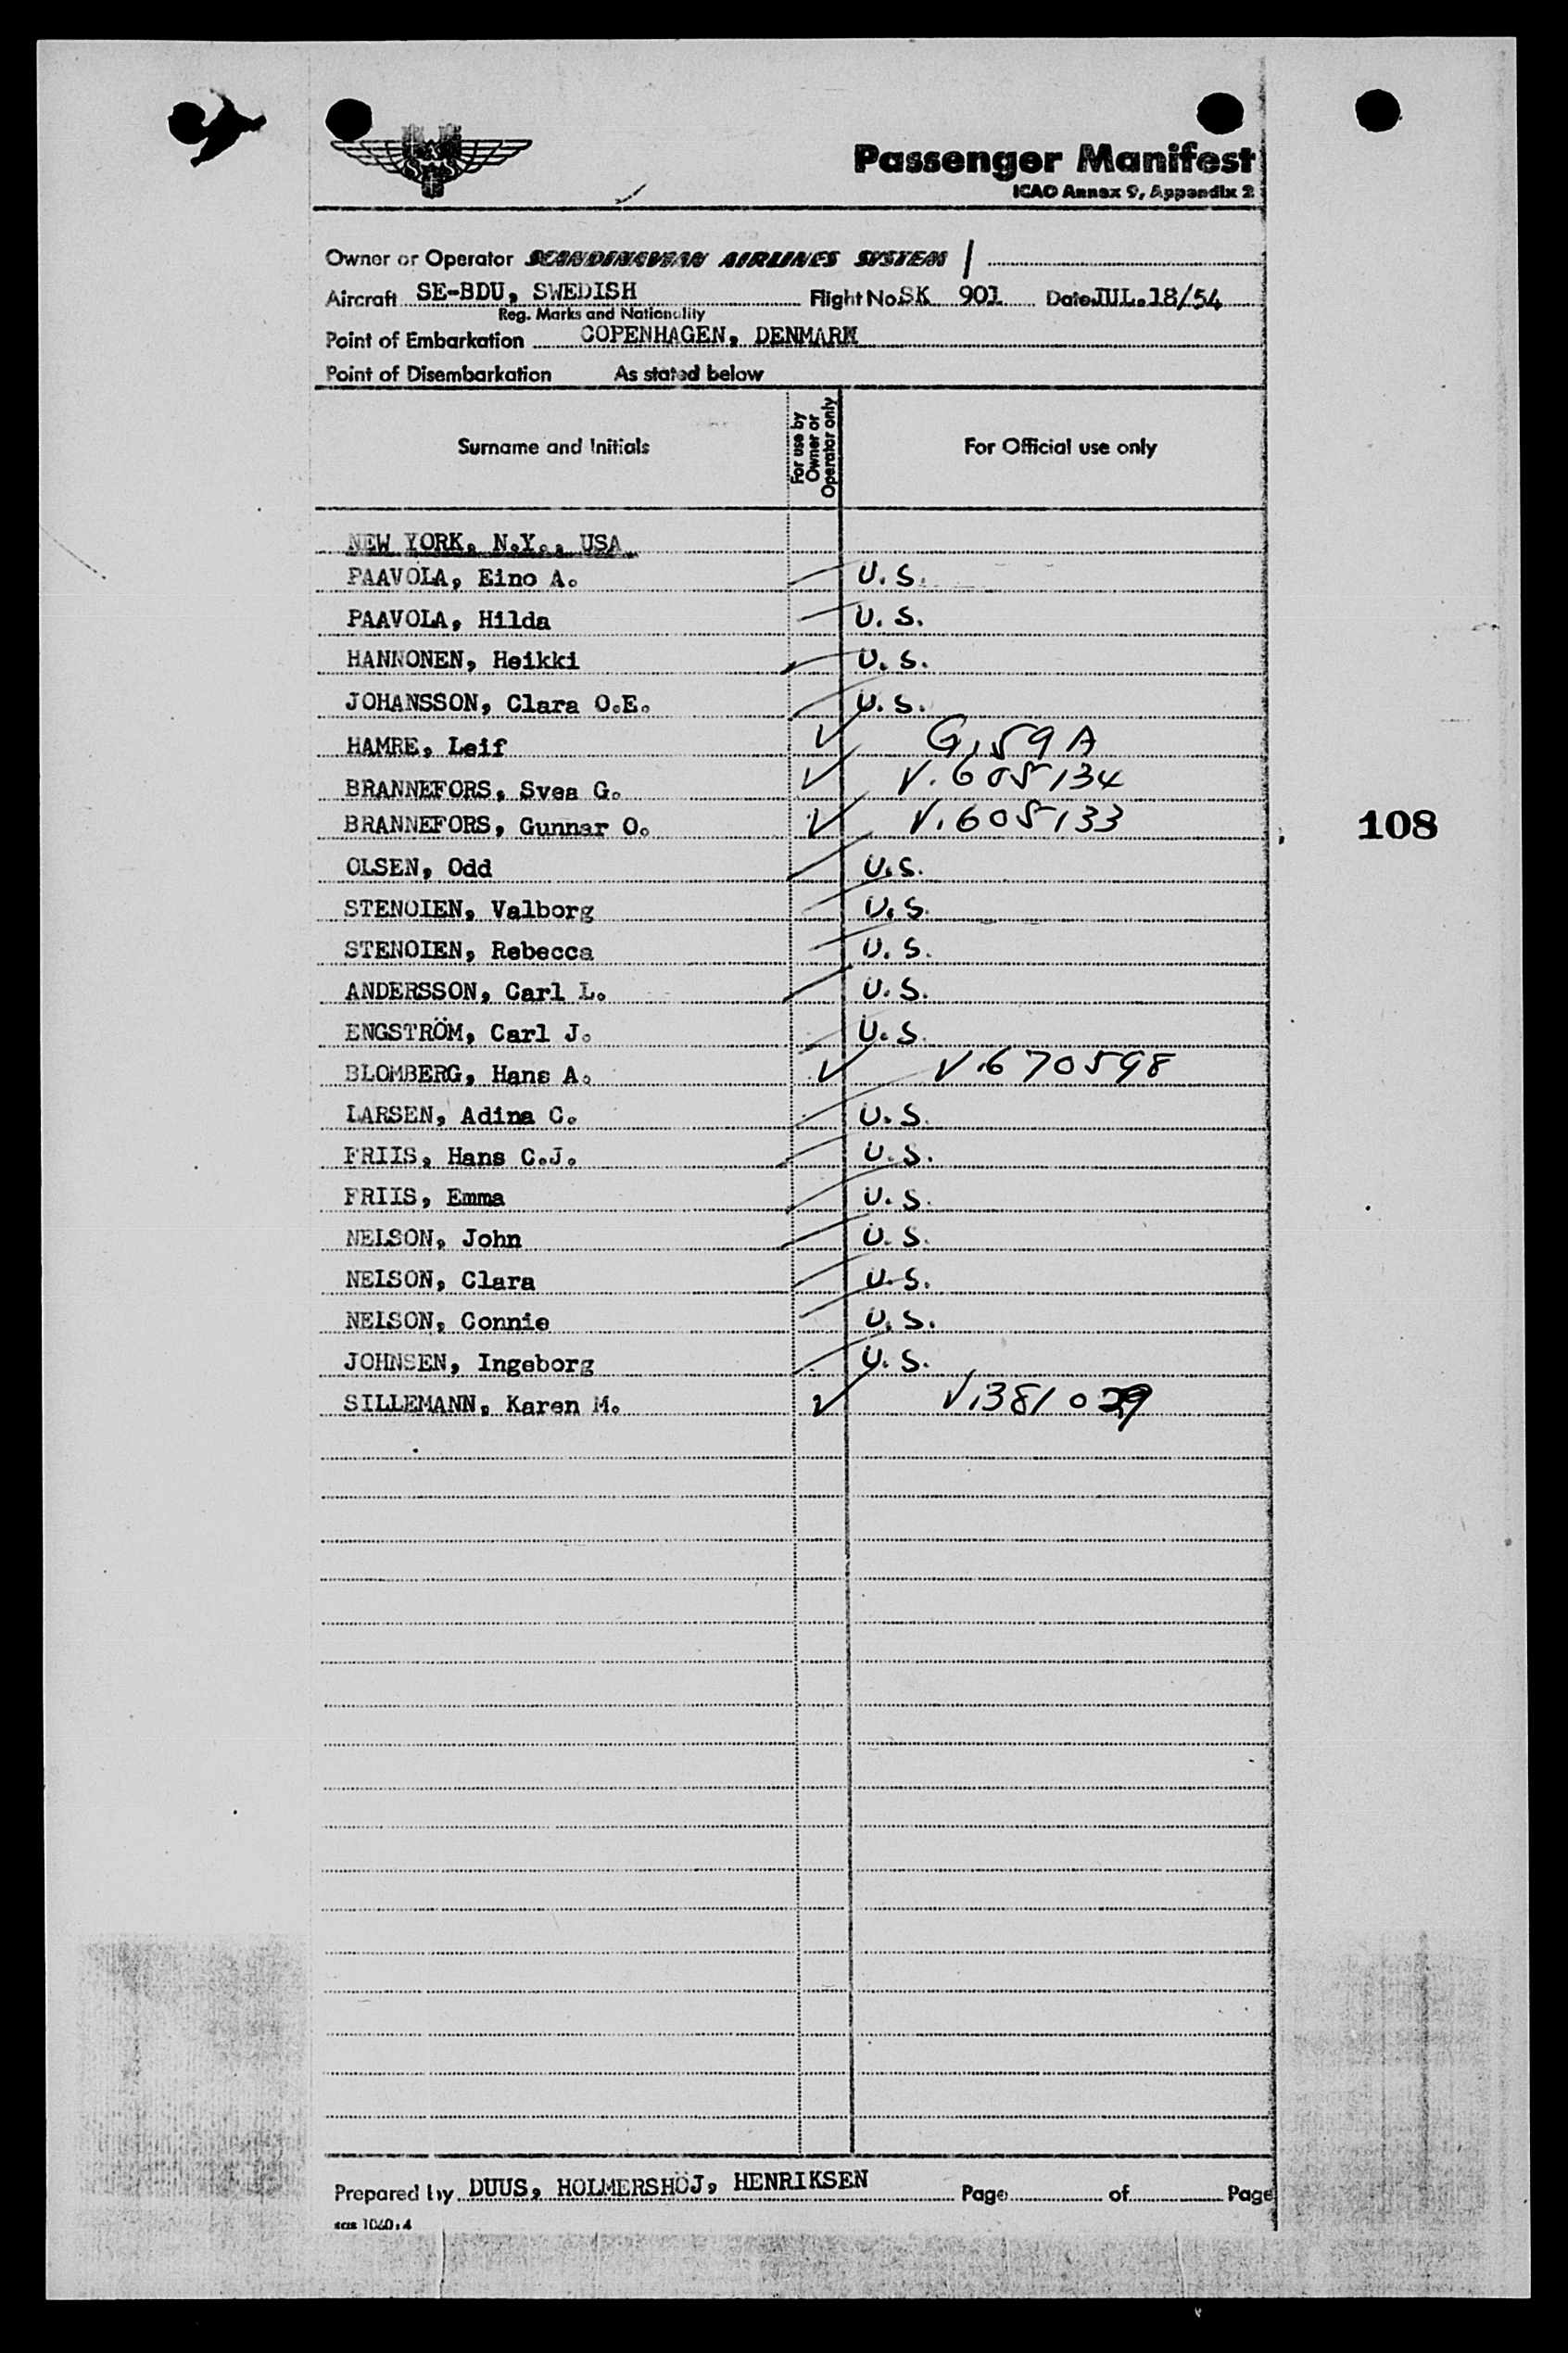 SAS
Passenger Manifest
ICAO Annex 9, Appendix 2
Owner or Operator SCANDINAVIAN AIRLINES SYSTEM /
Aircraft SE-BDU, SWEDISH Flight No. SK 901 Date JUL.18/54
Reg. Marks and Nationality
Point of Embarkation COPENHAGEN, DENMARK
Point of Disembarkation As stated below
Surname and Initials For use by Owner or Operator only For Official use only
NEW YORK, N.Y., USA
PAAVOLA, Eino A. U.S.
PAAVOLA, Hilda U.S.
HANNONEN, Heikki U.S.
JOHANSSON, Clara O.E. U.S.
HAMRE, Leif ✓ G,59A
BRANNEFORS, Svea G. ✓ V.605134
BRANNEFORS, Gunnar O. ✓ V.605133
108
OLSEN, Odd U.S.
STENOIEN, Valborg U.S.
STENOIEN, Rebecca U.S.
ANDERSSON, Carl L. U.S.
ENGSTRÖM, Carl J. U.S.
BLOMBERG, Hans A. ✓ V.670598
LARSEN, Adina C. U.S.
FRIIS, Hans C.J. U.S.
FRIIS, Emma U.S.
NELSON, John U.S.
NELSON, Clara U.S.
NELSON, Connie U.S.
JOHNSEN, Ingeborg U.S.
SILLEMANN, Karen M. ✓
Prepared by DUUS, HOLMERSHÖJ, HENRIKSEN Page of Page
sas 1040:4